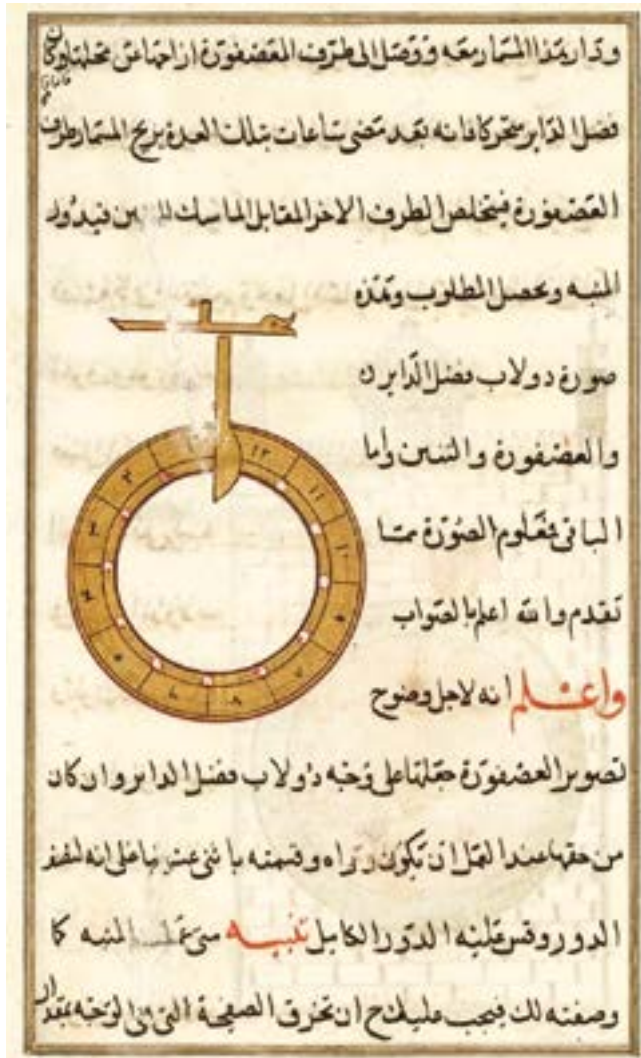 ودار بهذا المسمار معه ووصل الى طرف العصفورة ازاحها عن محلها وكان
فضل الداير متحركا فانه بعد مضى ساعات بتلك العدة يزيح المسمار طرف
العصفورة فيتخلص الطرف الاخر المقابل الماسك للتنين فيدور
المنبه ويحصل المطلوب وهذه
صورة دولاب فضل الداير
والعصفورة والتنين وأما
الباقى فمعلوم الصورة مما
تقدم والله اعلم بالصواب
واعلم انه لاجل وضوح
تصوير العصفورة جعلتها على وجه دولاب فضل الداير وان كان
من حقها عند العمل ان تكون وراه وقسمته باثنى عشر بناء على انه لنصف
الدور وقس عليه الدور الكامل تنبيه متى المنبه كما
وصفته لك فيجب عليك ح ان تخرق الصفيحة التى فى الوجه بمقدار
١٢
١١
١٠
٩
٨
٧
٦
٥
٤
٣
٢